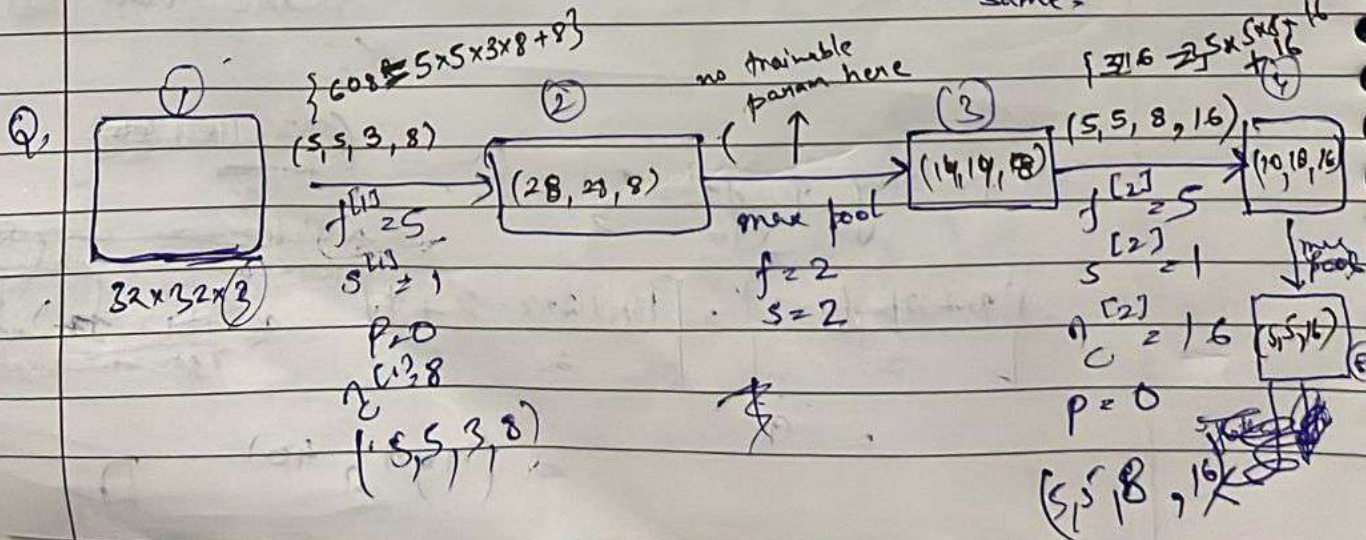 same.
Q,
①
{608 = 5×5×3×8+8}
(5,5,3,8)
f[1] = 5
s[1] = 1
p=0
n_c[1] = 8
(5,5,3,8)
32×32×3
②
(28, 28, 8)
no trainable
param here
max pool
f = 2
s = 2
③
(14,14,8)
{3216 = 5×5×8×16
+16}
(5,5,8,16)
f[2] = 5
s[2] = 1
n_c[2] = 16
p = 0
(5,5,8,16)
④
(10,10,16)
max
pool
(5,5,16)